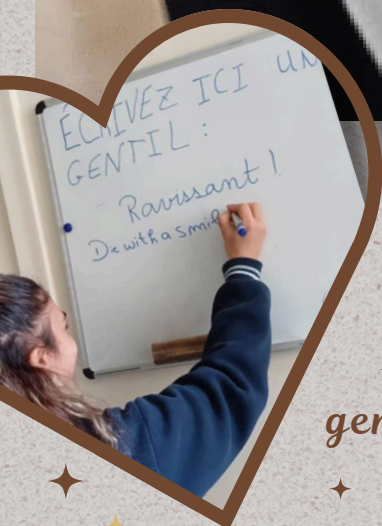 ÉCRIVEZ ICI UN
GENTIL :
Ravissant !
Die with a smil
ger